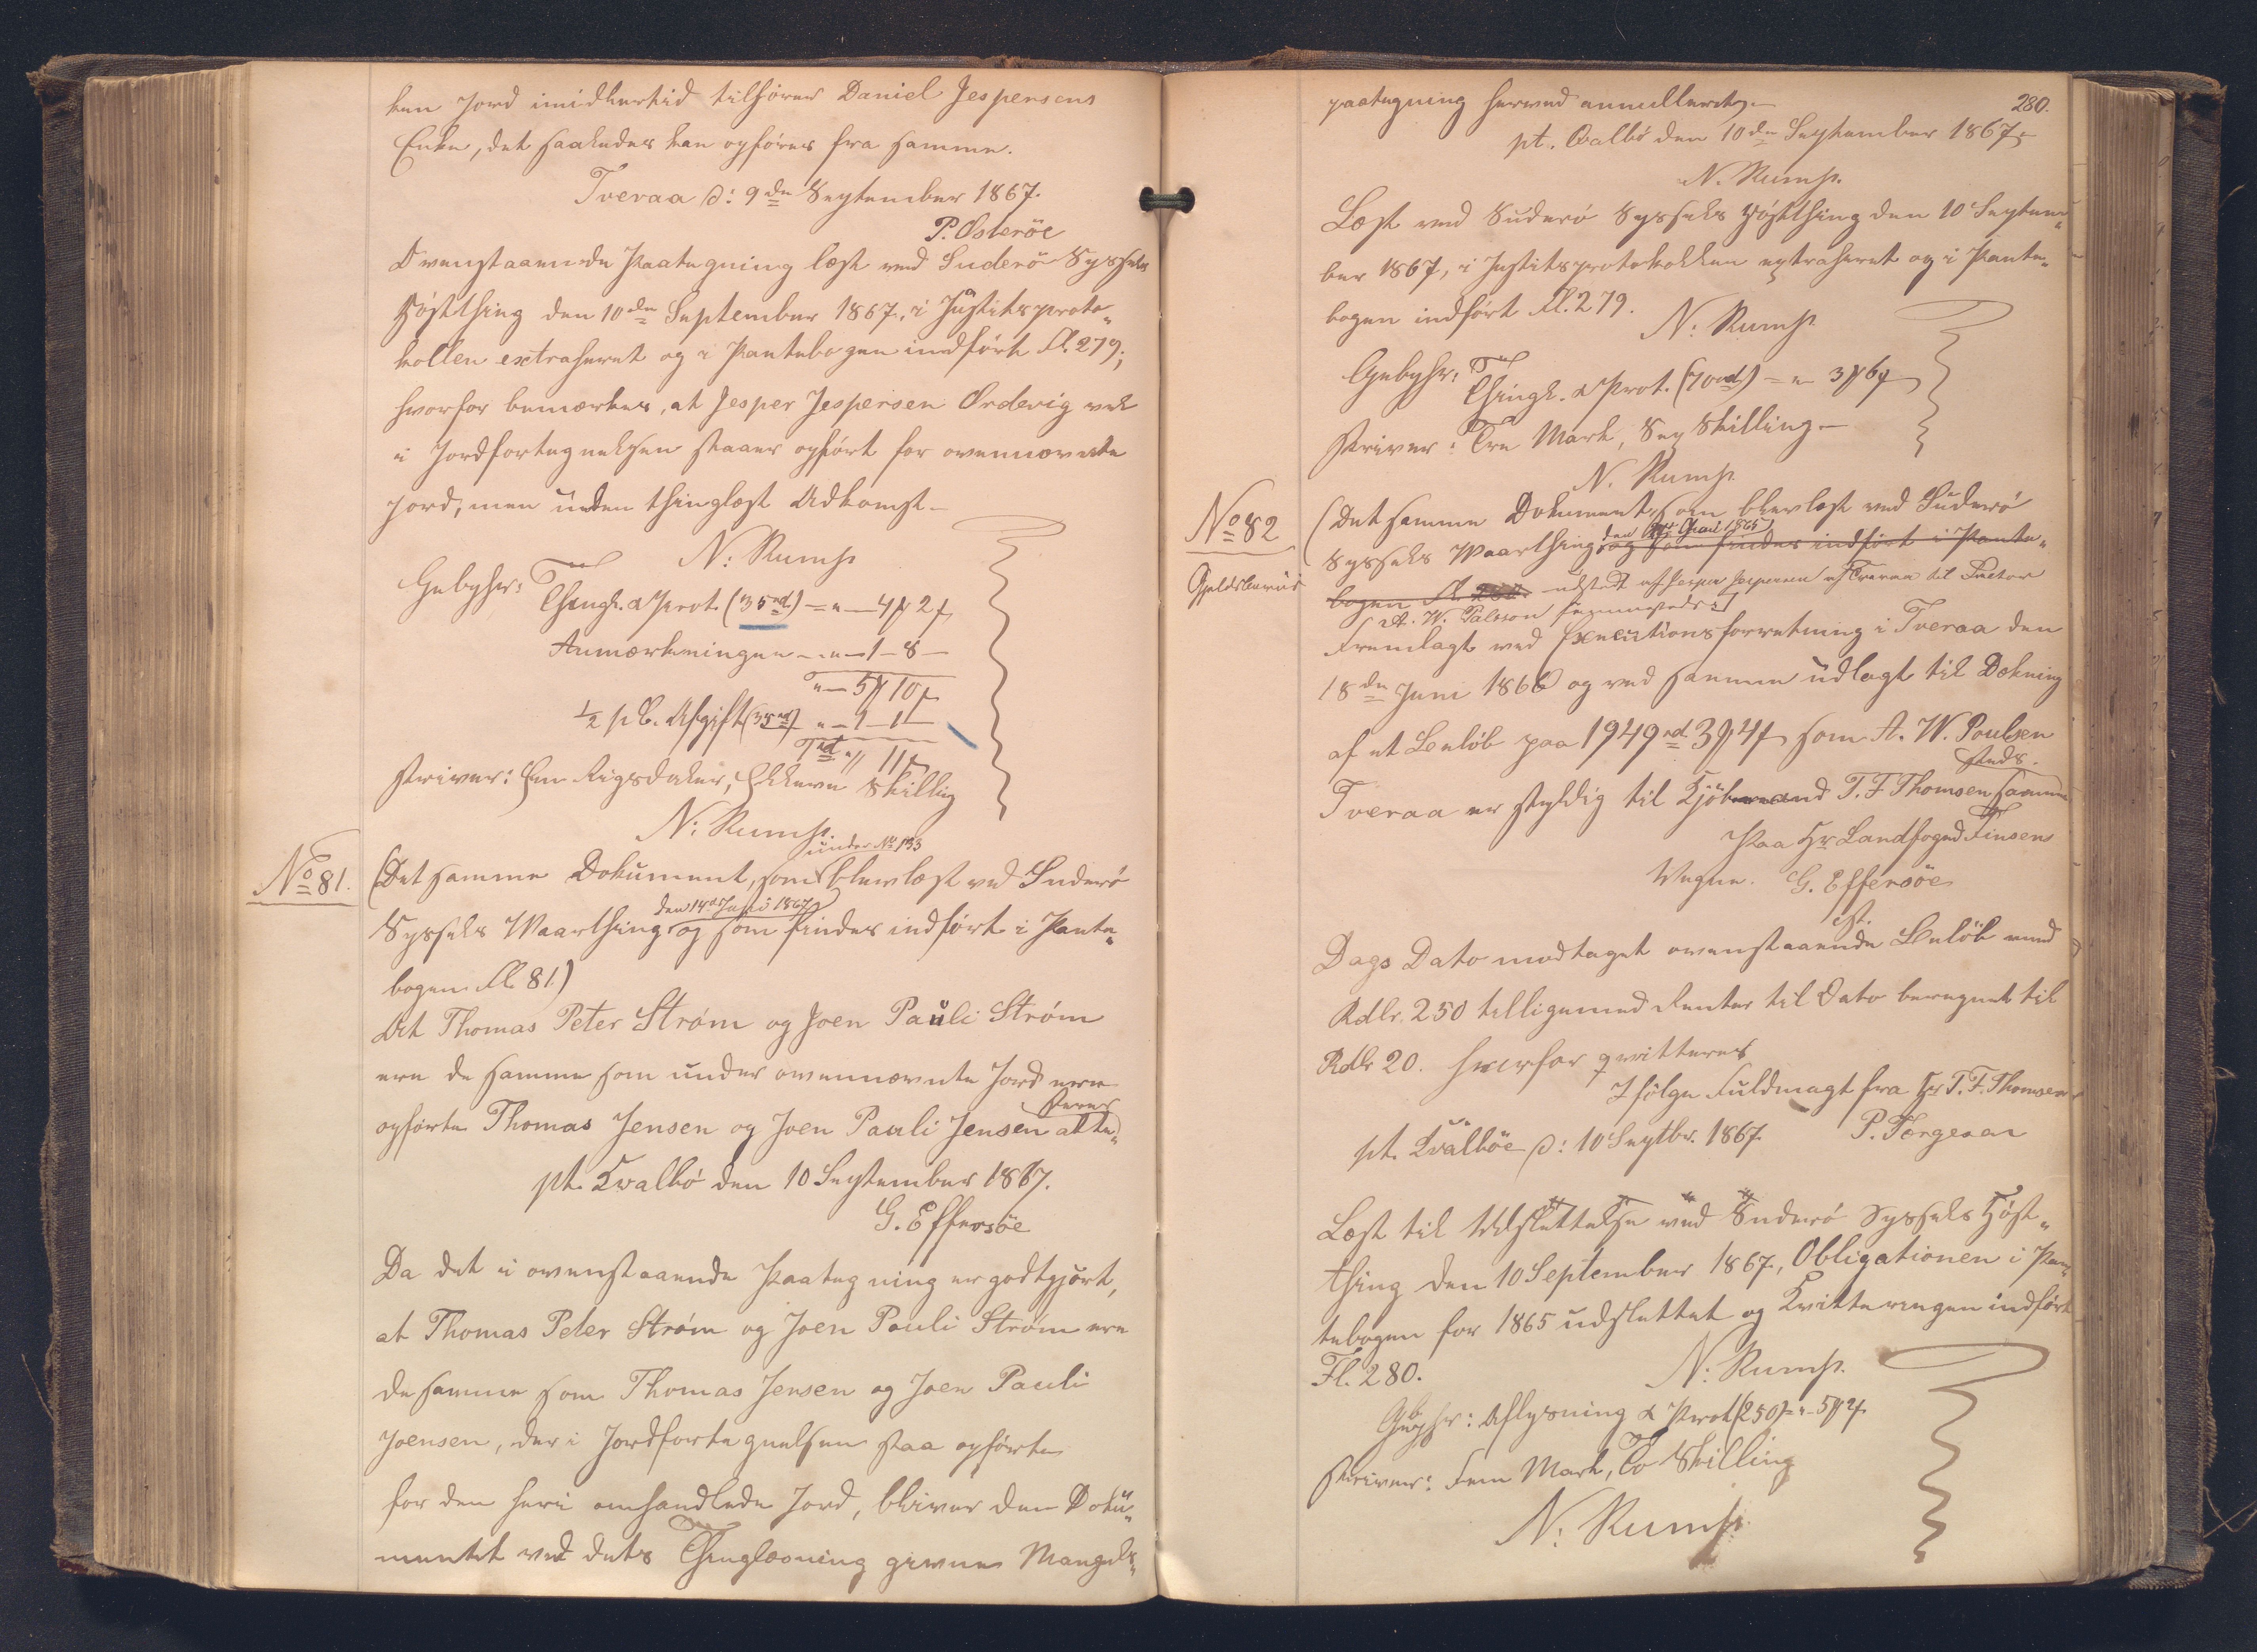 ken Jord imidlertid tilhører Daniel Jespersens
Enke, det saaledes kan opføres fra samme.
Tveraa d: 9de September 1867.
P. Osteröe
Ovenstaaende Paategning læst ved Suderö Syssels
Høstthing den 10de September 1867, i Justitsproto„
kollen extraheret og i Pantebogen indført Fl. 279;
hvorfor bemærkes, at Jesper Jespersen Ördevig vel
i Jordfortegnelsen staaer opført for ovennævnte
Jord, men uden thinglæst Adkomst.
N: Rump
Gebyhr: Thingl. & Prot. (35rd) = „ – 4 ꝟ 2 ſ
Anmærkningen – „ – 1 – 8 –
„ – 5 ꝟ 10 ſ
½ pC. Afgift (35rd) „ – 1 – 1 –
1rd „ 11 ſ
skriver: Een Rigsdaler, Elleve Skilling
N: Rump.
No 81.
under No 133
(Det samme Dokument, som blev læst ved Suderö
den 14de Juni 1867
Syssels Vaarthing og som findes indført i Pante„
bogen Fl. 81)
At Thomas Peter Strøm og Joen Pauli Strøm
ere de samme som under ovennævnte Jord ere
opførte Thomas Jensen og Joen Pauli Jensen atte„
steres
pt. Kvalbö den 10 September 1867.
G. Effersöe
Da det i ovenstaaende Paategning er godtgjört,
at Thomas Peter Strøm og Joen Pauli Strøm ere
de samme som Thomas Jensen og Joen Pauli
Joensen, der i Jordfortegnelsen staa opførte
for den heri omhandlede Jord, bliver den Doku„
mentet ved dets Thinglæsning givne Mangels„
280.
paategning herved annulleret.
pt. Qvalbö den 10de September 1867.
N. Rump.
Læst ved Suderö Syssels Høstthing den 10 Septem„
ber 1867, i Justitsprotokollen extraheret og i Pante„
bogen indført Fl. 279.
N: Rump
Gebyhr: Thingl. & Prot. (70rd) = „ 3 ꝟ 6 ſ
skriver: Tre Mark, Sex Skilling
N. Rump
No 82
Gjeldsbeviis
(Det samme Dokument, som blev læst ved Suderö
Syssels Vaarthing og som findes indført i Pante„
bogen Fl. udstedt af Jesper Jespersen af Tveraa til Factor
A. W. Pálsson sammesteds)
Fremlagt ved Executionsforretning i Tveraa den
18de Juni 1866 og ved samme udlagt til Dækning
af et Beløb paa 1949rd 3 ꝟ 4 ſ som A. W. Poulsen
Tveraa er skyldig til Kjöbmand T. F Thomsen samme
steds.
Paa Hr Landfoged Finsens
Vegne. G. Effersöe
cst.
Dags Dato modtaget ovenstaaende Beløb med
Rdlr. 250 tilligemed Renter til Dato beregnet til
Rdlr 20. hvorfor qvitteres
Ifølge Fuldmagt fra Hr T. F. Thomsen
pt. Kvalböe d: 10 Septbr. 1867. P.
Læst til Udslettelse ved Suderö Syssels Høst„
thing den 10 September 1867, Obligationen i Pan„
tebogen for 1865 udslettet og Kvitteringen indført
Fl. 280.
N: Rump.
Gebyhr: Aflysning & Prot (250) = „ 5 ꝟ 2 ſ
skriver: Fem Mark, To Skilling
N: Rump.